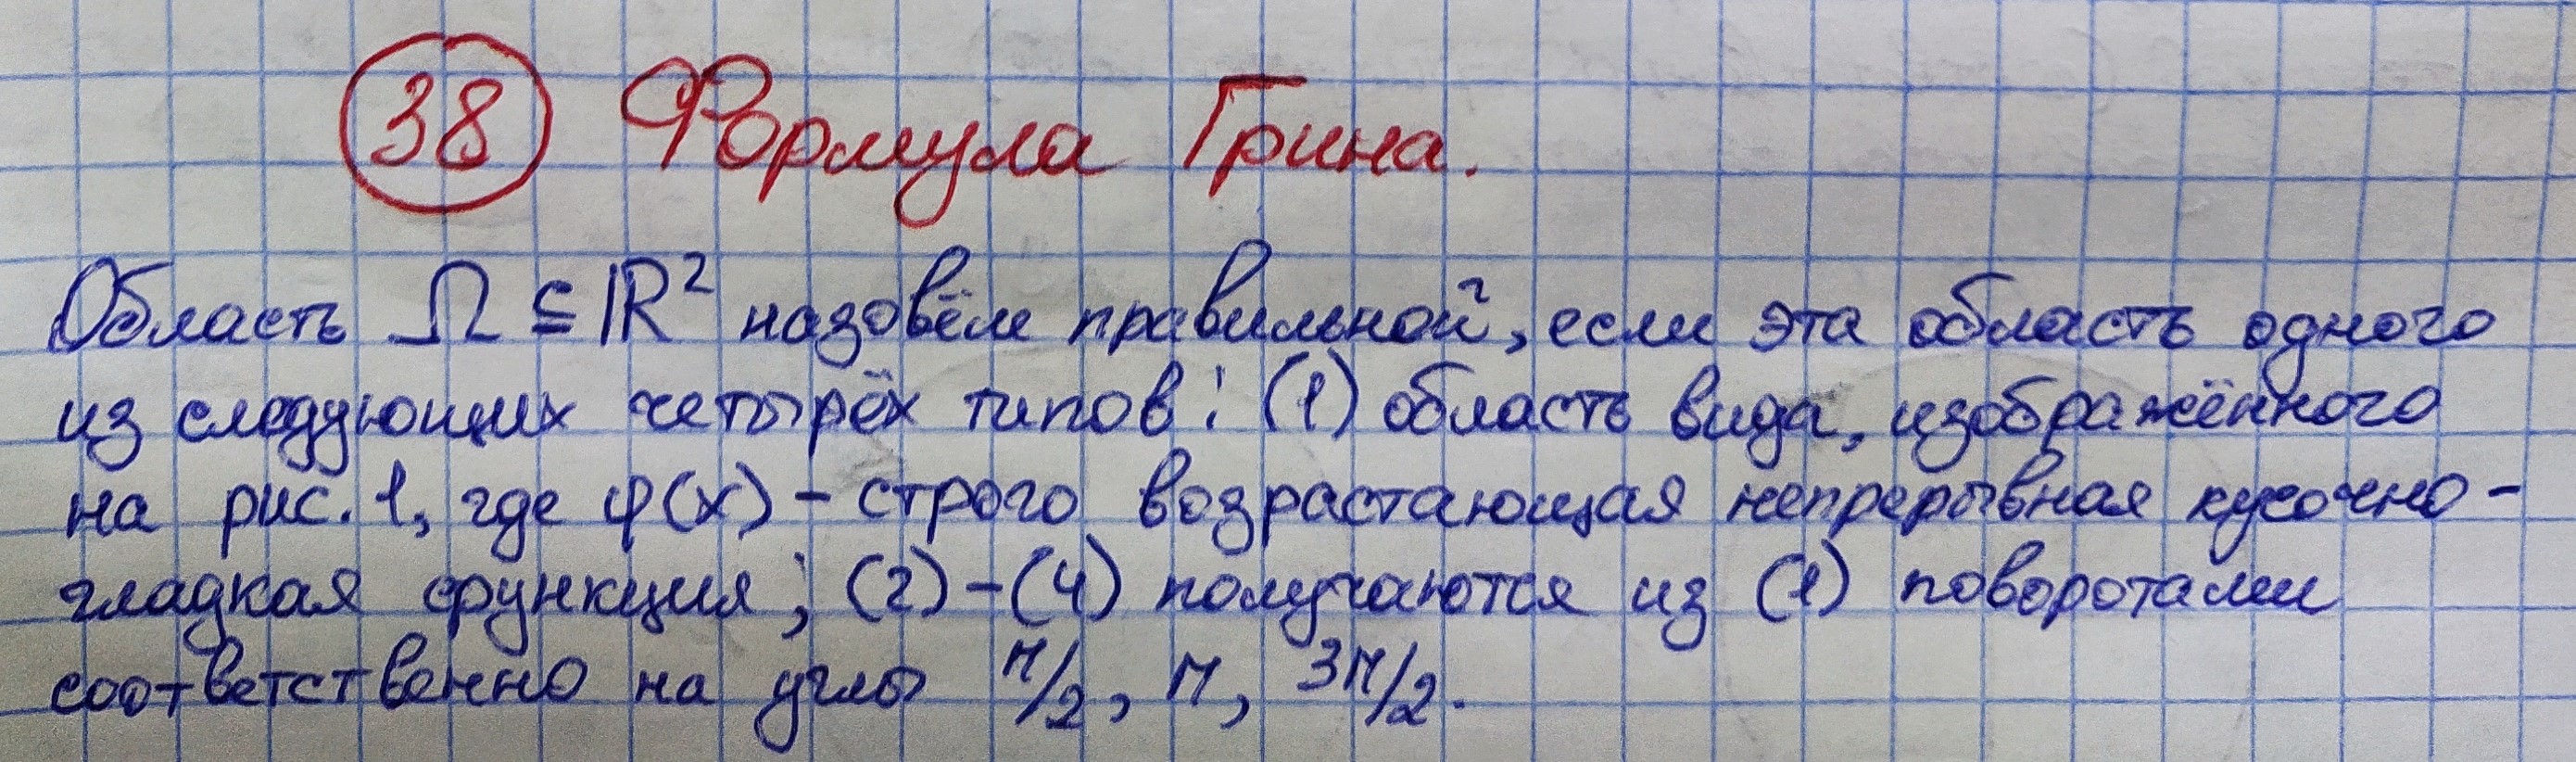 38 Формула Грина.
Область Ω ⊆ ℝ² назовём правильной, если эта область одного
из следующих четырёх типов: (1) область вида, изображённого
на рис. 1, где φ(x) – строго возрастающая непрерывная кусочно-
гладкая функция; (2)–(4) получаются из (1) поворотами
соответственно на углы π/2, π, 3π/2.